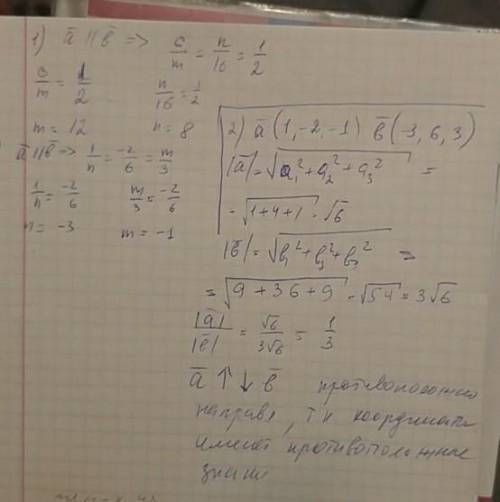 1) a̅ || b̅ => 6/m = n/16 = 1/2
6/m = 1/2 n/16 = 1/2
m = 12 n = 8
a̅ || b̅ => 1/n = -2/6 = m/3
1/n = -2/6 m/3 = -2/6
n = -3 m = -1
2) a̅ (1,-2,-1) b̅ (-3, 6, 3)
|a̅| = √a₁² + a₂² + a₃² =
= √1+4+1 = √6
|b̅| = √b₁² + b₂² + b₃² =
= √9 + 36 + 9 = √54 = 3√6
|a̅|/|b̅| = √6/3√6 = 1/3
a̅ ↑↓ b̅ противоположно
направл, тк координаты
имеют противоположные
знаки